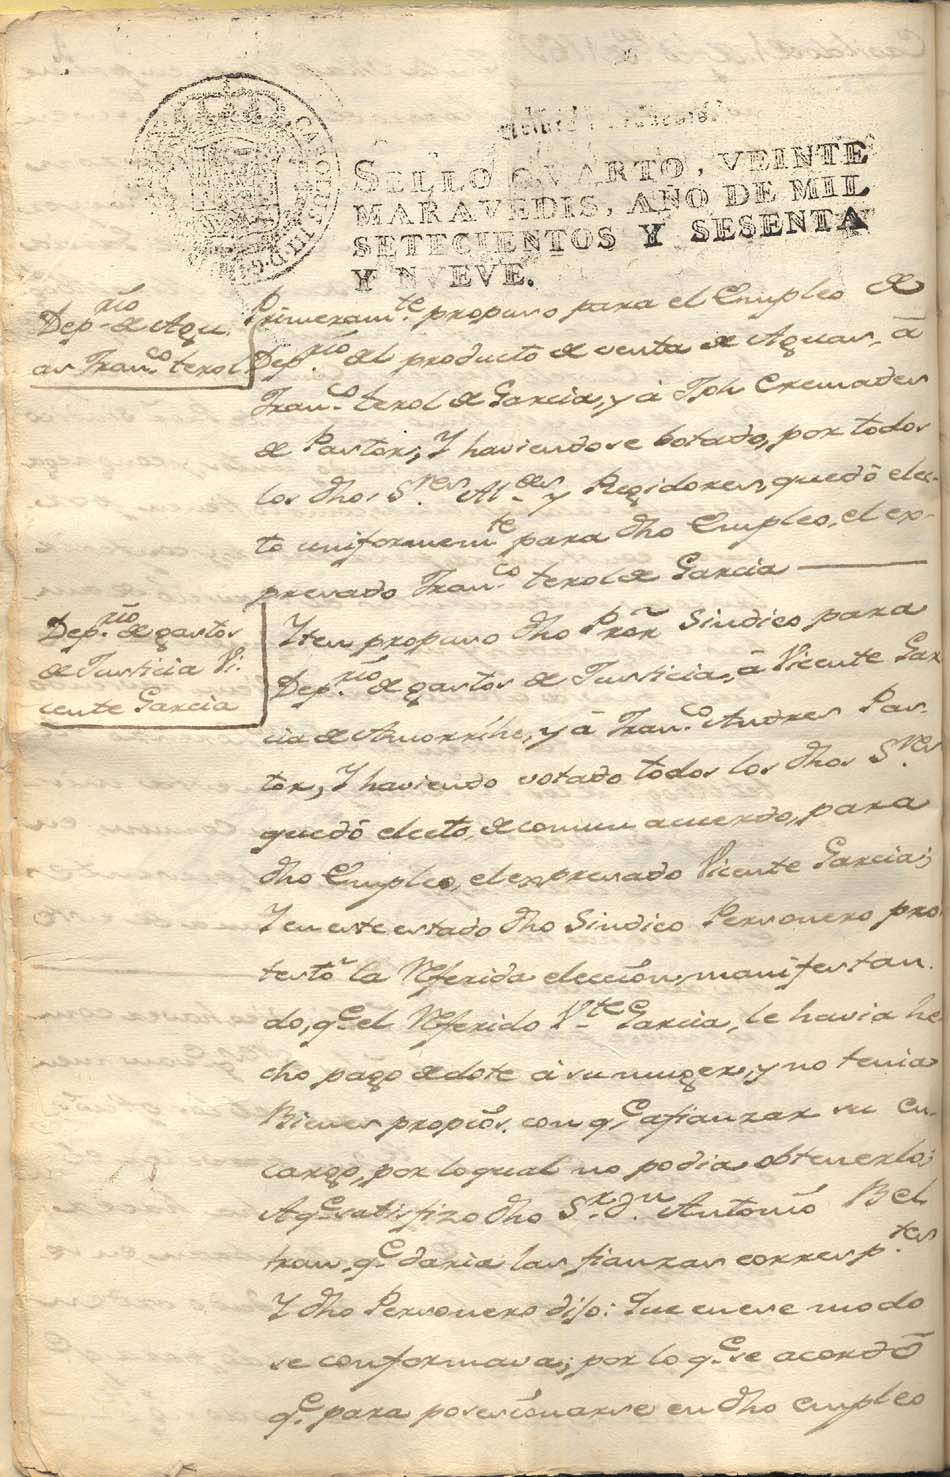 CAROLUS III D G
SELLO QVARTO, VEINTE
MARAVEDIS, AÑO DE MIL
SETECIENTOS Y SESENTA
Y NVEVE.
Dep.rio de Agu
as Fran.co terol
Primeram.te propuso para el Empleo de
Dep.rio del producto de venta de Aguas, â
Fran.co terol de Garcia, y â Jph Cremades
de Pastor; Y haviendose botado, por todos
los dhos S.res Al.des y Regidores, quedô elec-
to uniformem.te para dho Empleo, el ex-
presado Fran.co terol de Garcia
Dep.rio de gastos
de Justicia Vi-
cente Garcia
Yten propuso dho Pror Sindico para
Dep.rio de gastos de Justicia, â Vicente Gar
cia de Amorrihe, y â Fran.co Andres Pas-
tor, Y haviendo votado todos los dhos S.res
quedô electo, de comun acuerdo, para
dho Empleo, el expresado Vicente Garcia;
Y en este estado dho Sindico Personero pro
testô la Referida elección, manifestan
do, q.e el Referido V.te Garcia, le havia he
cho pago de dote â su muger, y no tenia
Bienes propios. con q.e afianzar su en-
cargo, por lo qual no podia obtenerlo;
A q.e satisfizo dho S.r d.n Antonio Bel
tran, q.e daria las fianzas corresp.tes
Y dho Personero dijo: Que en ese modo
se conformava; por lo q.e se acordô
q.e para posesionarse en dho empleo